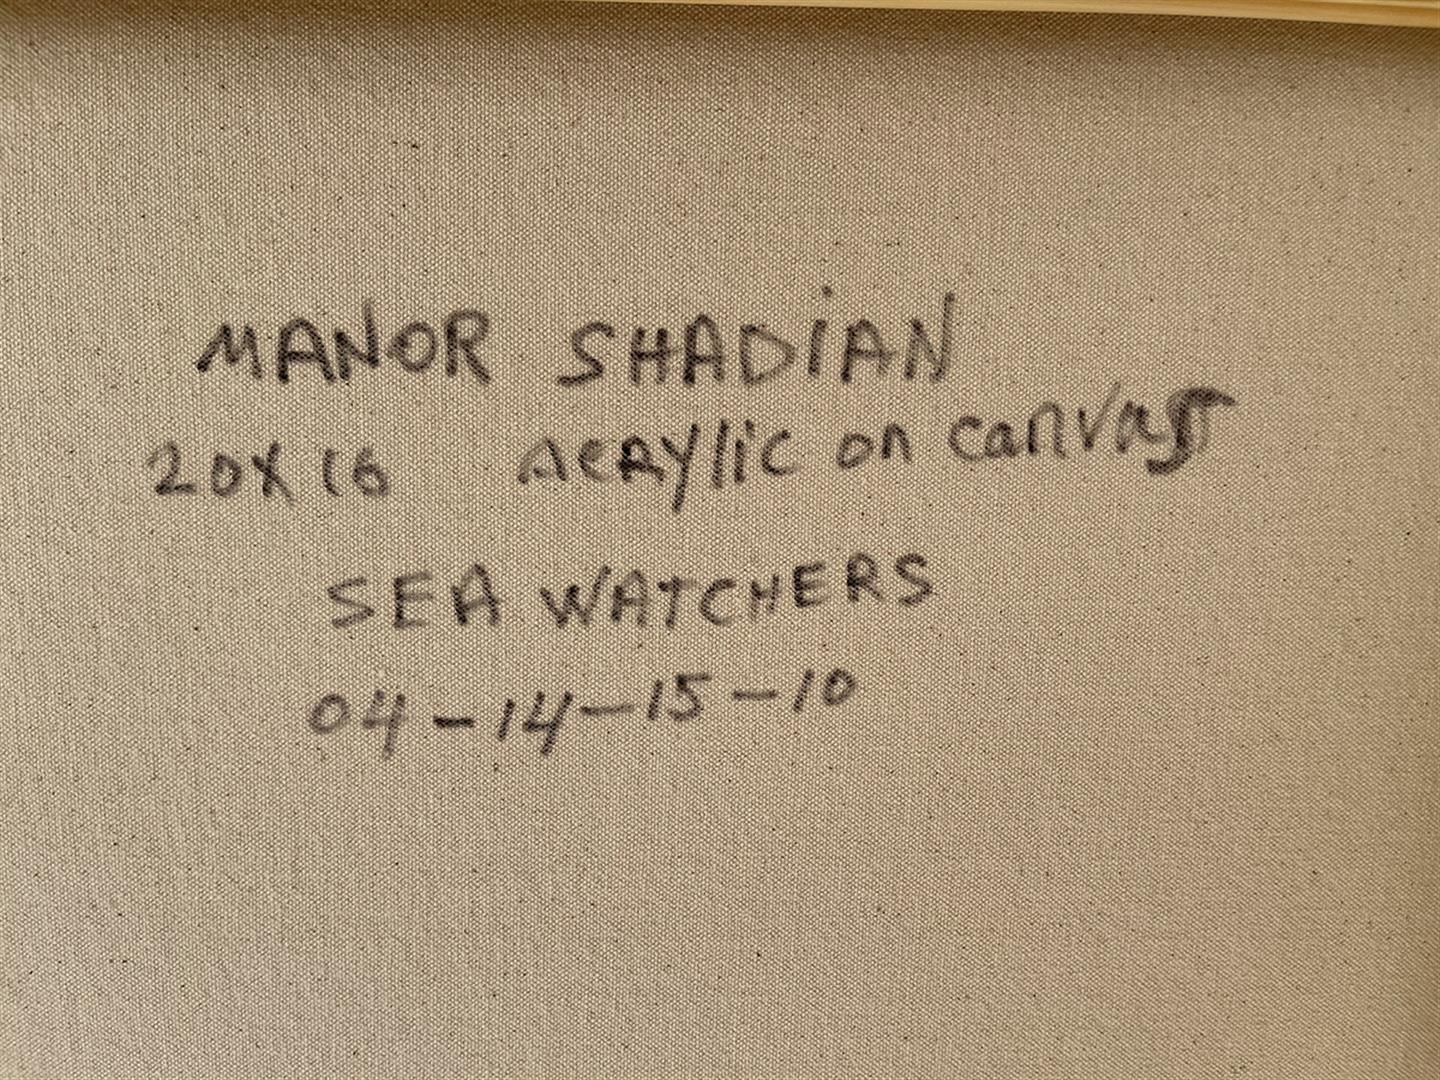 MANOR SHADIAN
20X16 ACRYlic on canvas
SEA WATCHERS
04-14-15-10